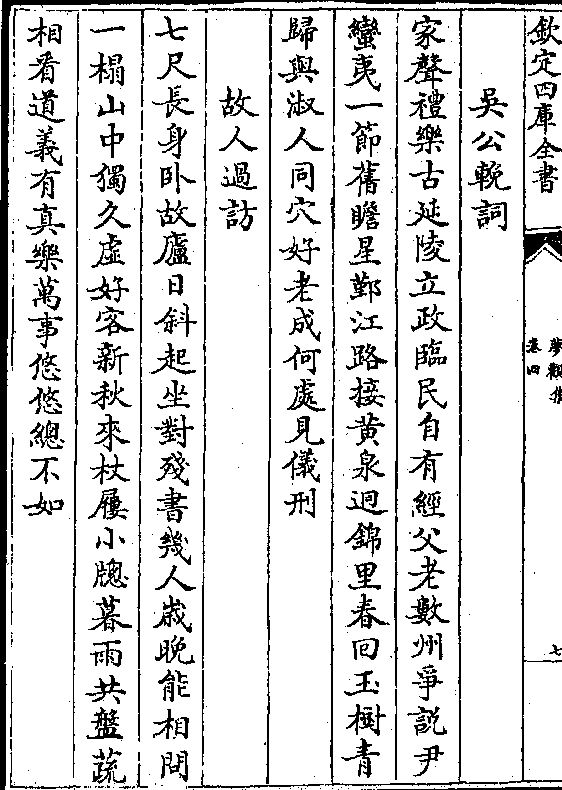 欽定四庫全書
夢觀集
卷四
七
吳公輓詞
家聲禮樂古延陵立政臨民自有經父老數州爭説尹
蠻夷一節舊瞻星鄞江路接黄泉迥錦里春回玉樹青
歸與淑人同穴好老成何處見儀刑
故人過訪
七尺長身卧故廬日斜起坐對殘書幾人嵗晚能相問
一榻山中獨久虛好客新秋來杖屨小牕暮雨共盤蔬
相看道義有真樂萬事悠悠總不如